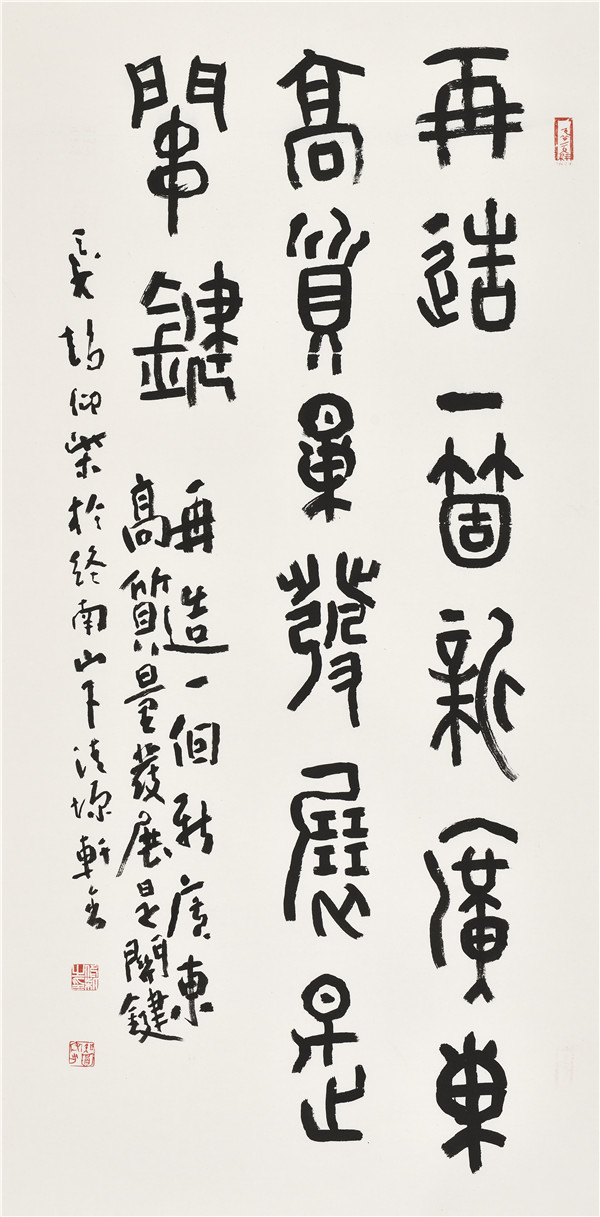 再造一箇新廣東
高質量發展是
關鍵
再造一個新廣東
高質量發展是關鍵
於終南山下清源軒